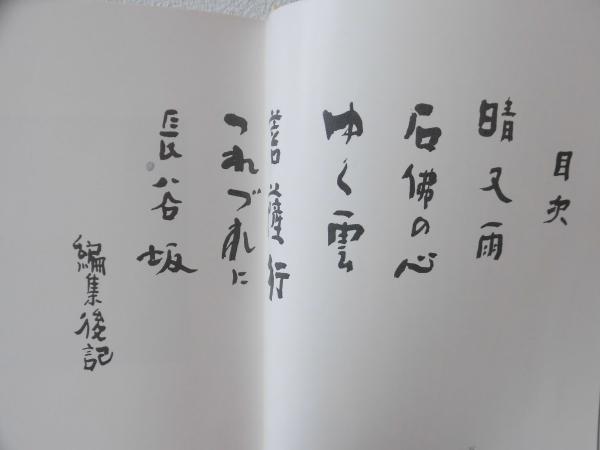 目次
晴又雨
石佛の心
ゆく雲
菩薩行
つれづれに
長谷坂
編集後記